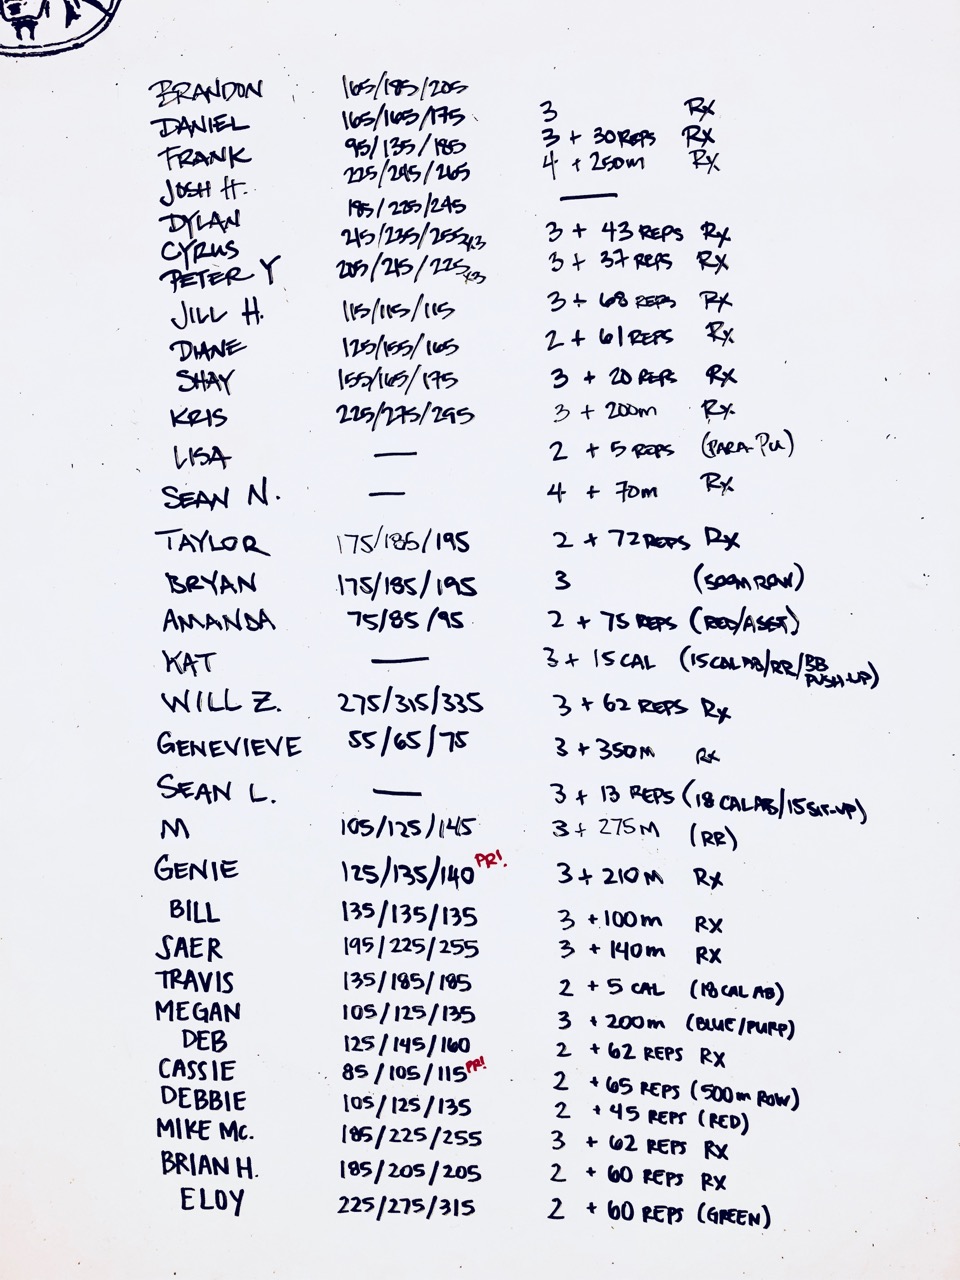 BRANDON 165/185/205 3 Rx
DANIEL 165/165/175 3 + 30 REPS Rx
FRANK 95/135/185 4 + 250m Rx
JOSH H. 225/245/265 —
DYLAN 185/225/245 3 + 43 REPS Rx
CYRUS 215/235/255x3 3 + 37 REPS Rx
PETER Y 205/215/225x3 3 + 68 REPS Rx
JILL H. 115/115/115 2 + 61 REPS Rx
DIANE 125/155/165 3 + 20 REPS Rx
SHAY 155/165/175 3 + 200m Rx
KRIS 225/275/295
LISA — 2 + 5 REPS (PARA-PU)
SEAN N. — 4 + 70m Rx
TAYLOR 175/185/195 2 + 72 REPS Rx
BRYAN 175/185/195 3 (500M ROW)
AMANDA 75/85/95 2 + 75 REPS (RED/ASST)
KAT — 3 + 15 CAL (15 CAL AB/RR/BB PUSH-UP)
WILL Z. 275/315/335 3 + 62 REPS Rx
GENEVIEVE 55/65/75 3 + 350m Rx
SEAN L. — 3 + 13 REPS (18 CAL AB/15 SIT-UP)
M 105/125/145 3 + 275M (RR)
GENIE 125/135/140 PR! 3 + 210M Rx
BILL 135/135/135 3 + 100m Rx
SAER 195/225/255 3 + 140m Rx
TRAVIS 135/185/185 2 + 5 CAL (18 CAL AB)
MEGAN 105/125/135 3 + 200m (BLUE/PURP)
DEB 125/145/160 2 + 62 REPS Rx
CASSIE 85/105/115 PR! 2 + 65 REPS (500m ROW)
DEBBIE 105/125/135 2 + 45 REPS (RED)
MIKE MC. 185/225/255 3 + 62 REPS Rx
BRIAN H. 185/205/205 2 + 60 REPS Rx
ELOY 225/275/315 2 + 60 REPS (GREEN)